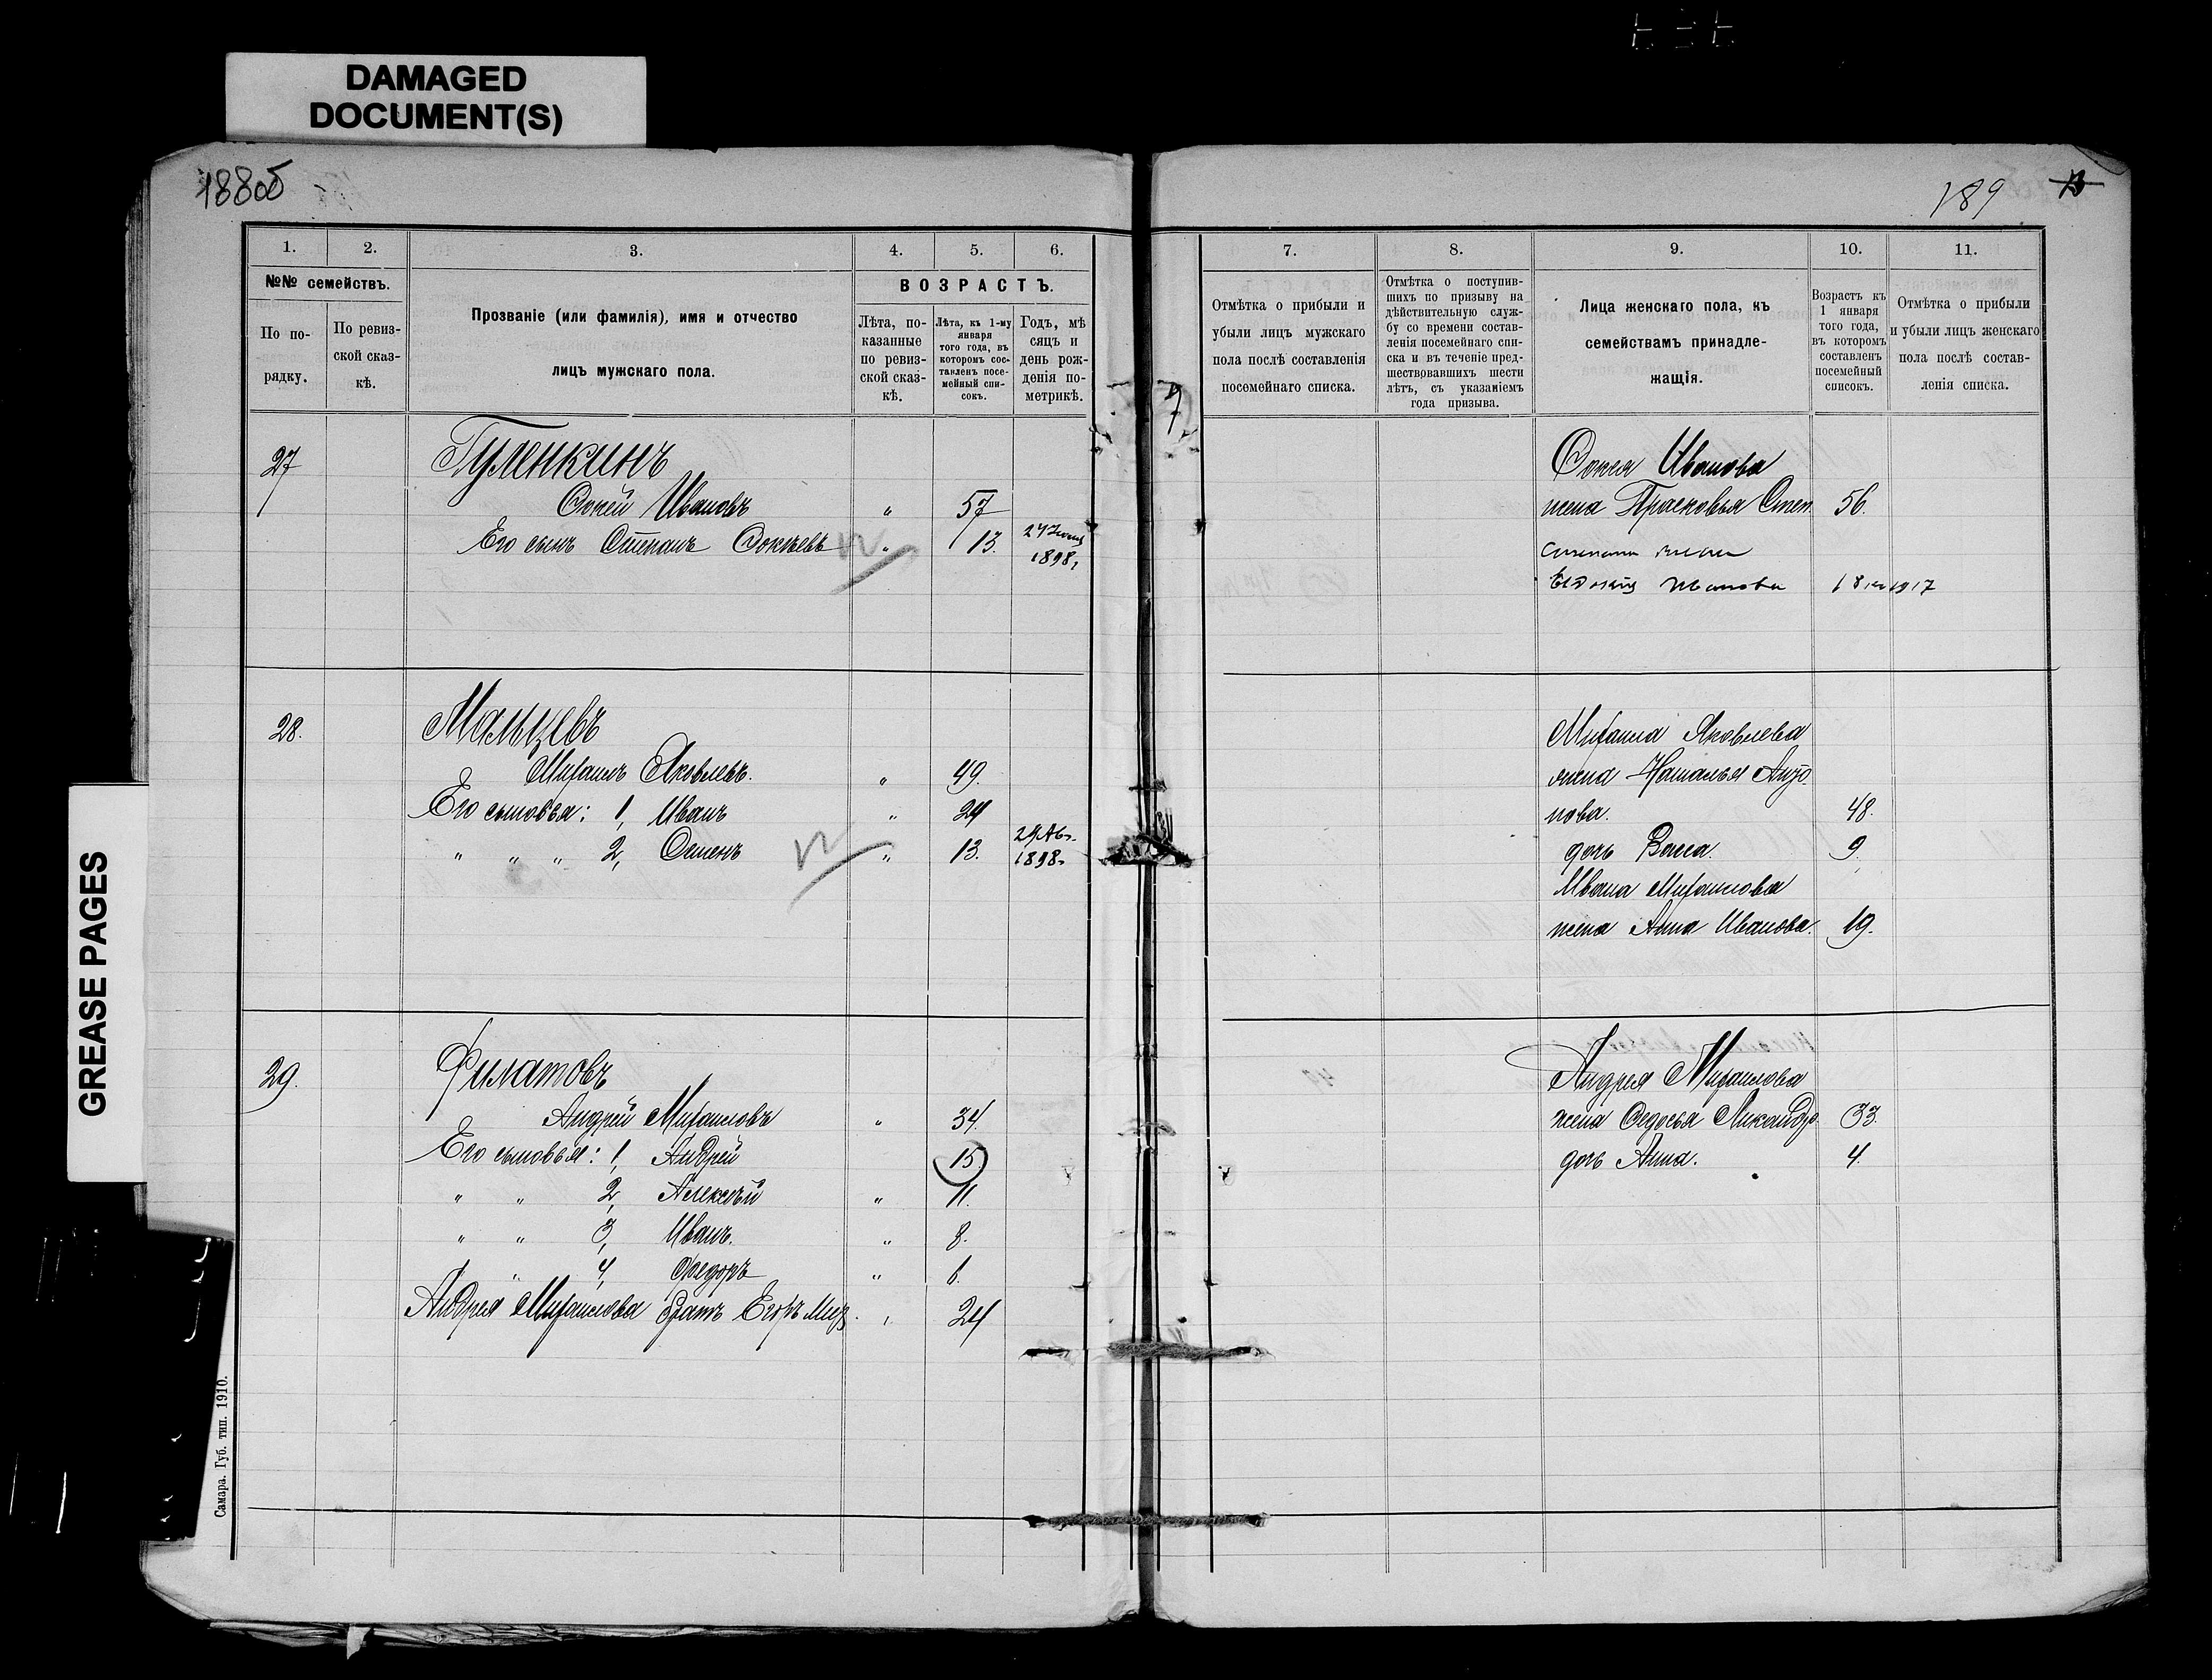 DAMAGED
DOCUMENT(S)
GREASE PAGES
188об
1. 2. 3. 4. 5. 6.
№№ семействъ.
По по-
рядку.
По ревиз-
ской сказ-
кѣ.
Прозваніе (или фамилія), имя и отчество
лицъ мужскаго пола.
ВОЗРАСТЪ.
Лѣта, по-
казанные
по ревиз-
ской сказ-
кѣ.
Лѣта, къ 1-му
января
того года, въ
которомъ сос-
тавленъ посе-
мейный спи-
сокъ.
Годъ, мѣ
сяцъ и
день рож-
денія по-
метрикѣ.
27 Гуленкинъ
Фокей Ивановъ " 57
Его сынъ Степанъ Фокѣевъ " 13. 24 Іюля
1898г
28. Мальцевъ
Михаилъ Яковлевъ. " 49.
Его сыновья: 1, Иванъ " 24
" " " 2, Семенъ " 13. 29 Авг.
1898г
29. Филатовъ
Андрей Михаиловъ " 34.
Его сыновья: 1, Андрей 15
" " 2, Алексѣй " 11.
" " 3, Иванъ. " 8.
" 4, Федоръ " 6.
Андрея Михаилова братъ Егоръ Мих. " 24
Самара. Губ. тип. 1910.
189
7. 8. 9. 10. 11.
Отмѣтка о прибыли и
убыли лицъ мужскаго
пола послѣ составленія
посемейнаго списка.
Отмѣтка о поступив-
шихъ по призыву на
дѣйствительную служ-
бу со времени состав-
ленія посемейнаго спи-
ска и въ теченіе пред-
шествовавшихъ шести
лѣтъ, съ указаніемъ
года призыва.
Лица женскаго пола, къ
семействамъ принадле-
жащія.
Возрастъ къ
1 января
того года,
въ которомъ
составленъ
посемейный
списокъ.
Отмѣтка о прибыли
и убыли лицъ женскаго
пола послѣ состав-
ленія списка.
Фокея Иванова
жена Прасковья Степ. 56.
Степана жена
Евдокія Иванова 18 1917
Михаила Яковлева
жена Наталья
нова. 48.
дочь Васса. 9.
Ивана Михаилова
жена Анна Иванова. 19.
Андрея Михаилова
жена Федосья Никандр. 33.
дочь Анна. 4.